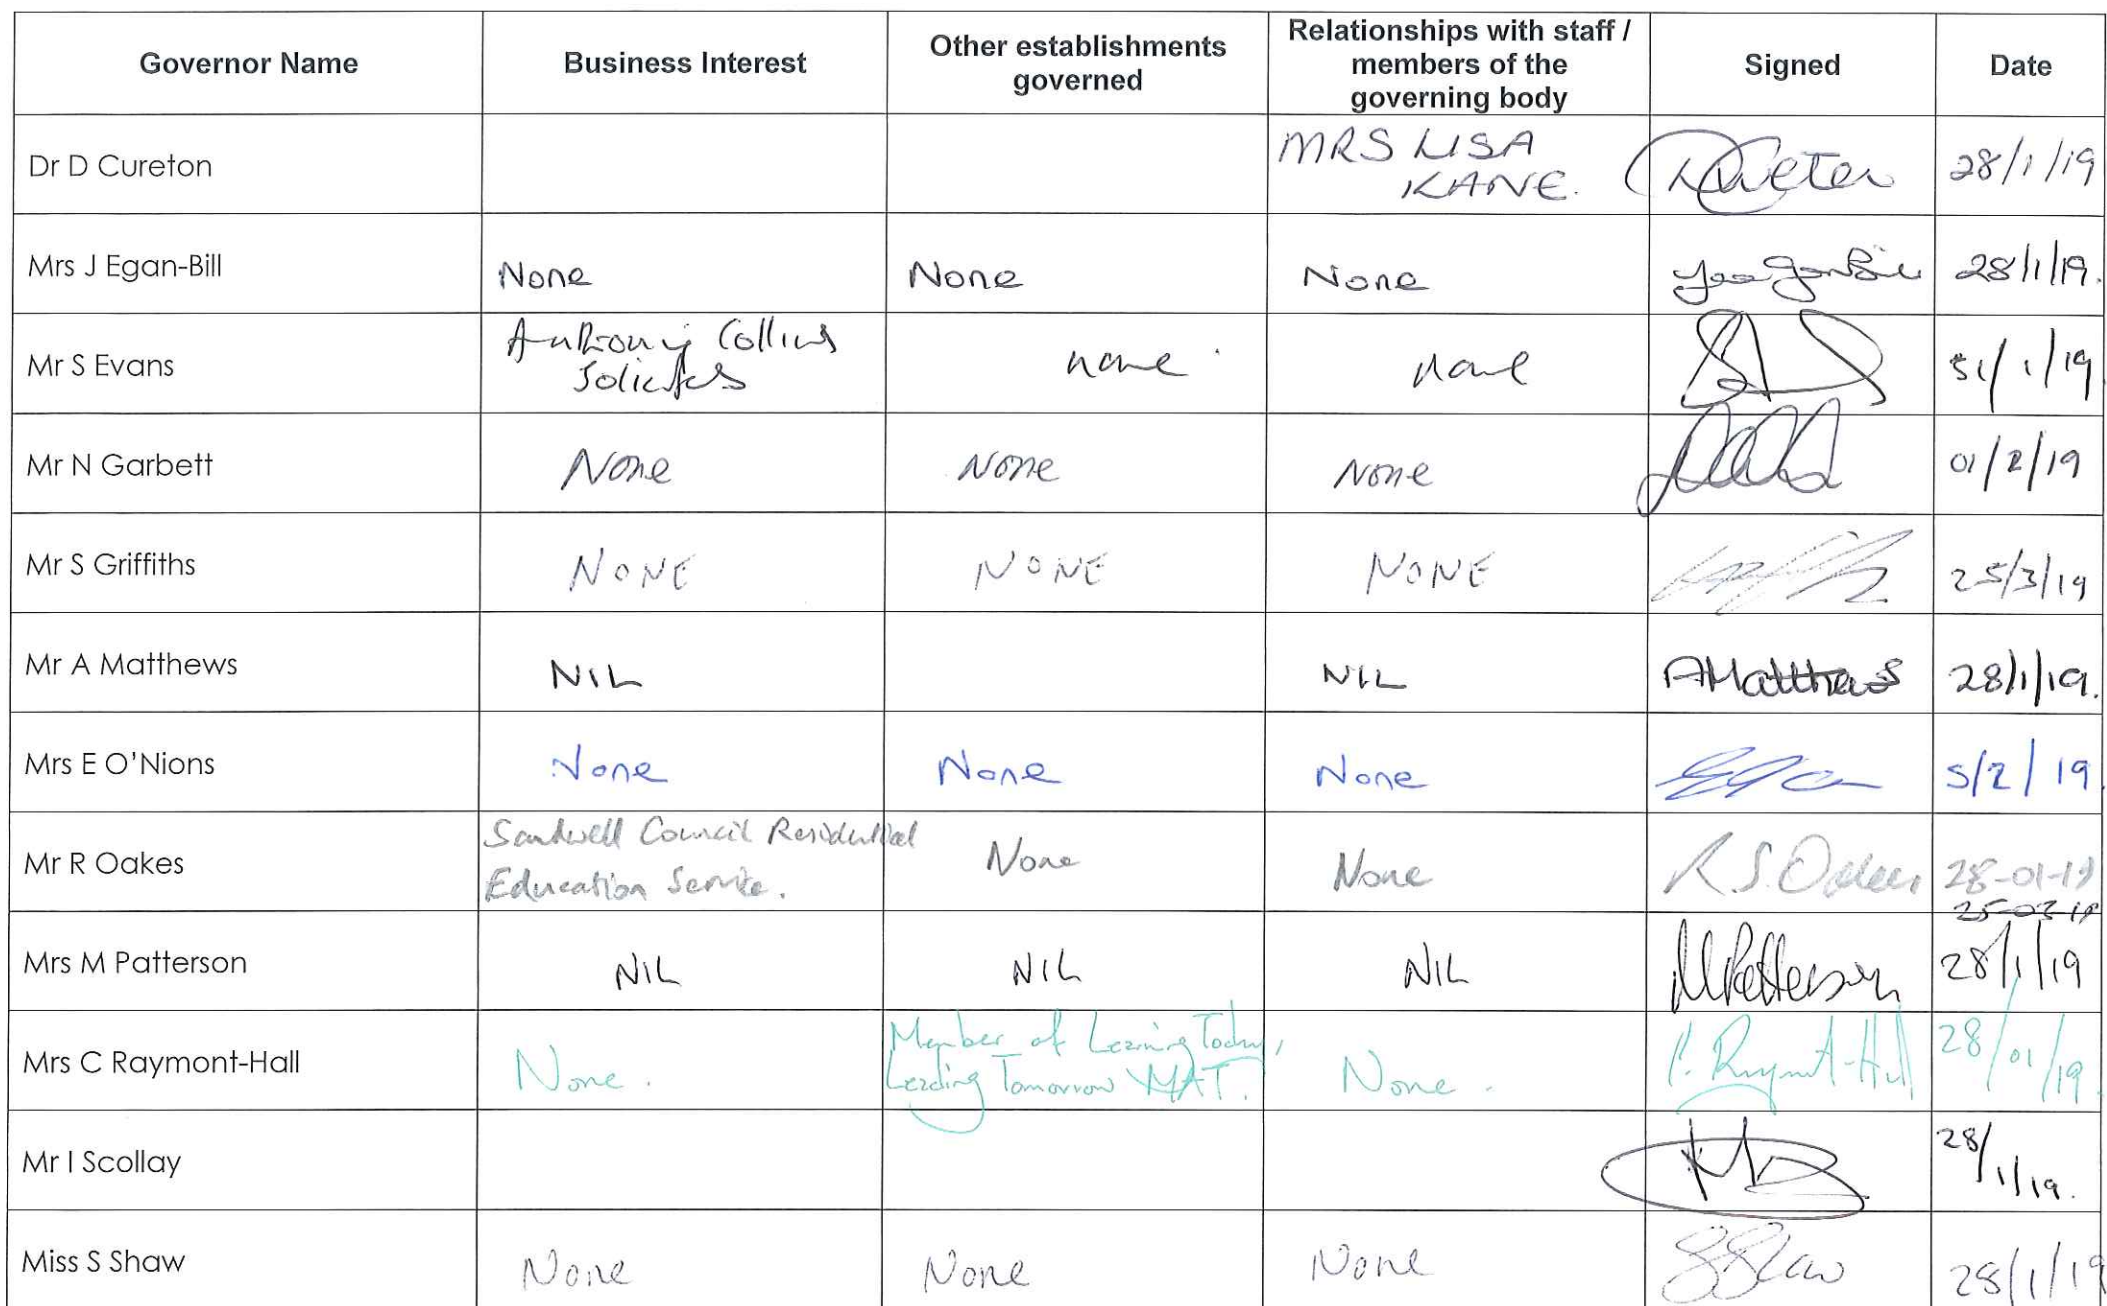 Governor Name Business Interest Other establishments governed Relationships with staff / members of the governing body Signed Date
Dr D Cureton MRS LISA KANE. 28/1/19
Mrs J Egan-Bill None None None 28/1/19.
Mr S Evans Anthony Collins Solicitors none none 31/1/19
Mr N Garbett None None None 01/2/19
Mr S Griffiths NONE NONE NONE 25/3/19
Mr A Matthews NIL NIL AMatthews 28/1/19.
Mrs E O'Nions None None None 5/2/19
Mr R Oakes Sandwell Council Residential Education Service. None None R S. Oakes 28-01-19
Mrs M Patterson NIL NIL NIL MPatterson 28/1/19
Mrs C Raymont-Hall None. Member of Learning Today, Leading Tomorrow MAT. None. C. Raymont-Hall 28/01/19.
Mr I Scollay 28/1/19.
Miss S Shaw None None None SShaw 28/1/19